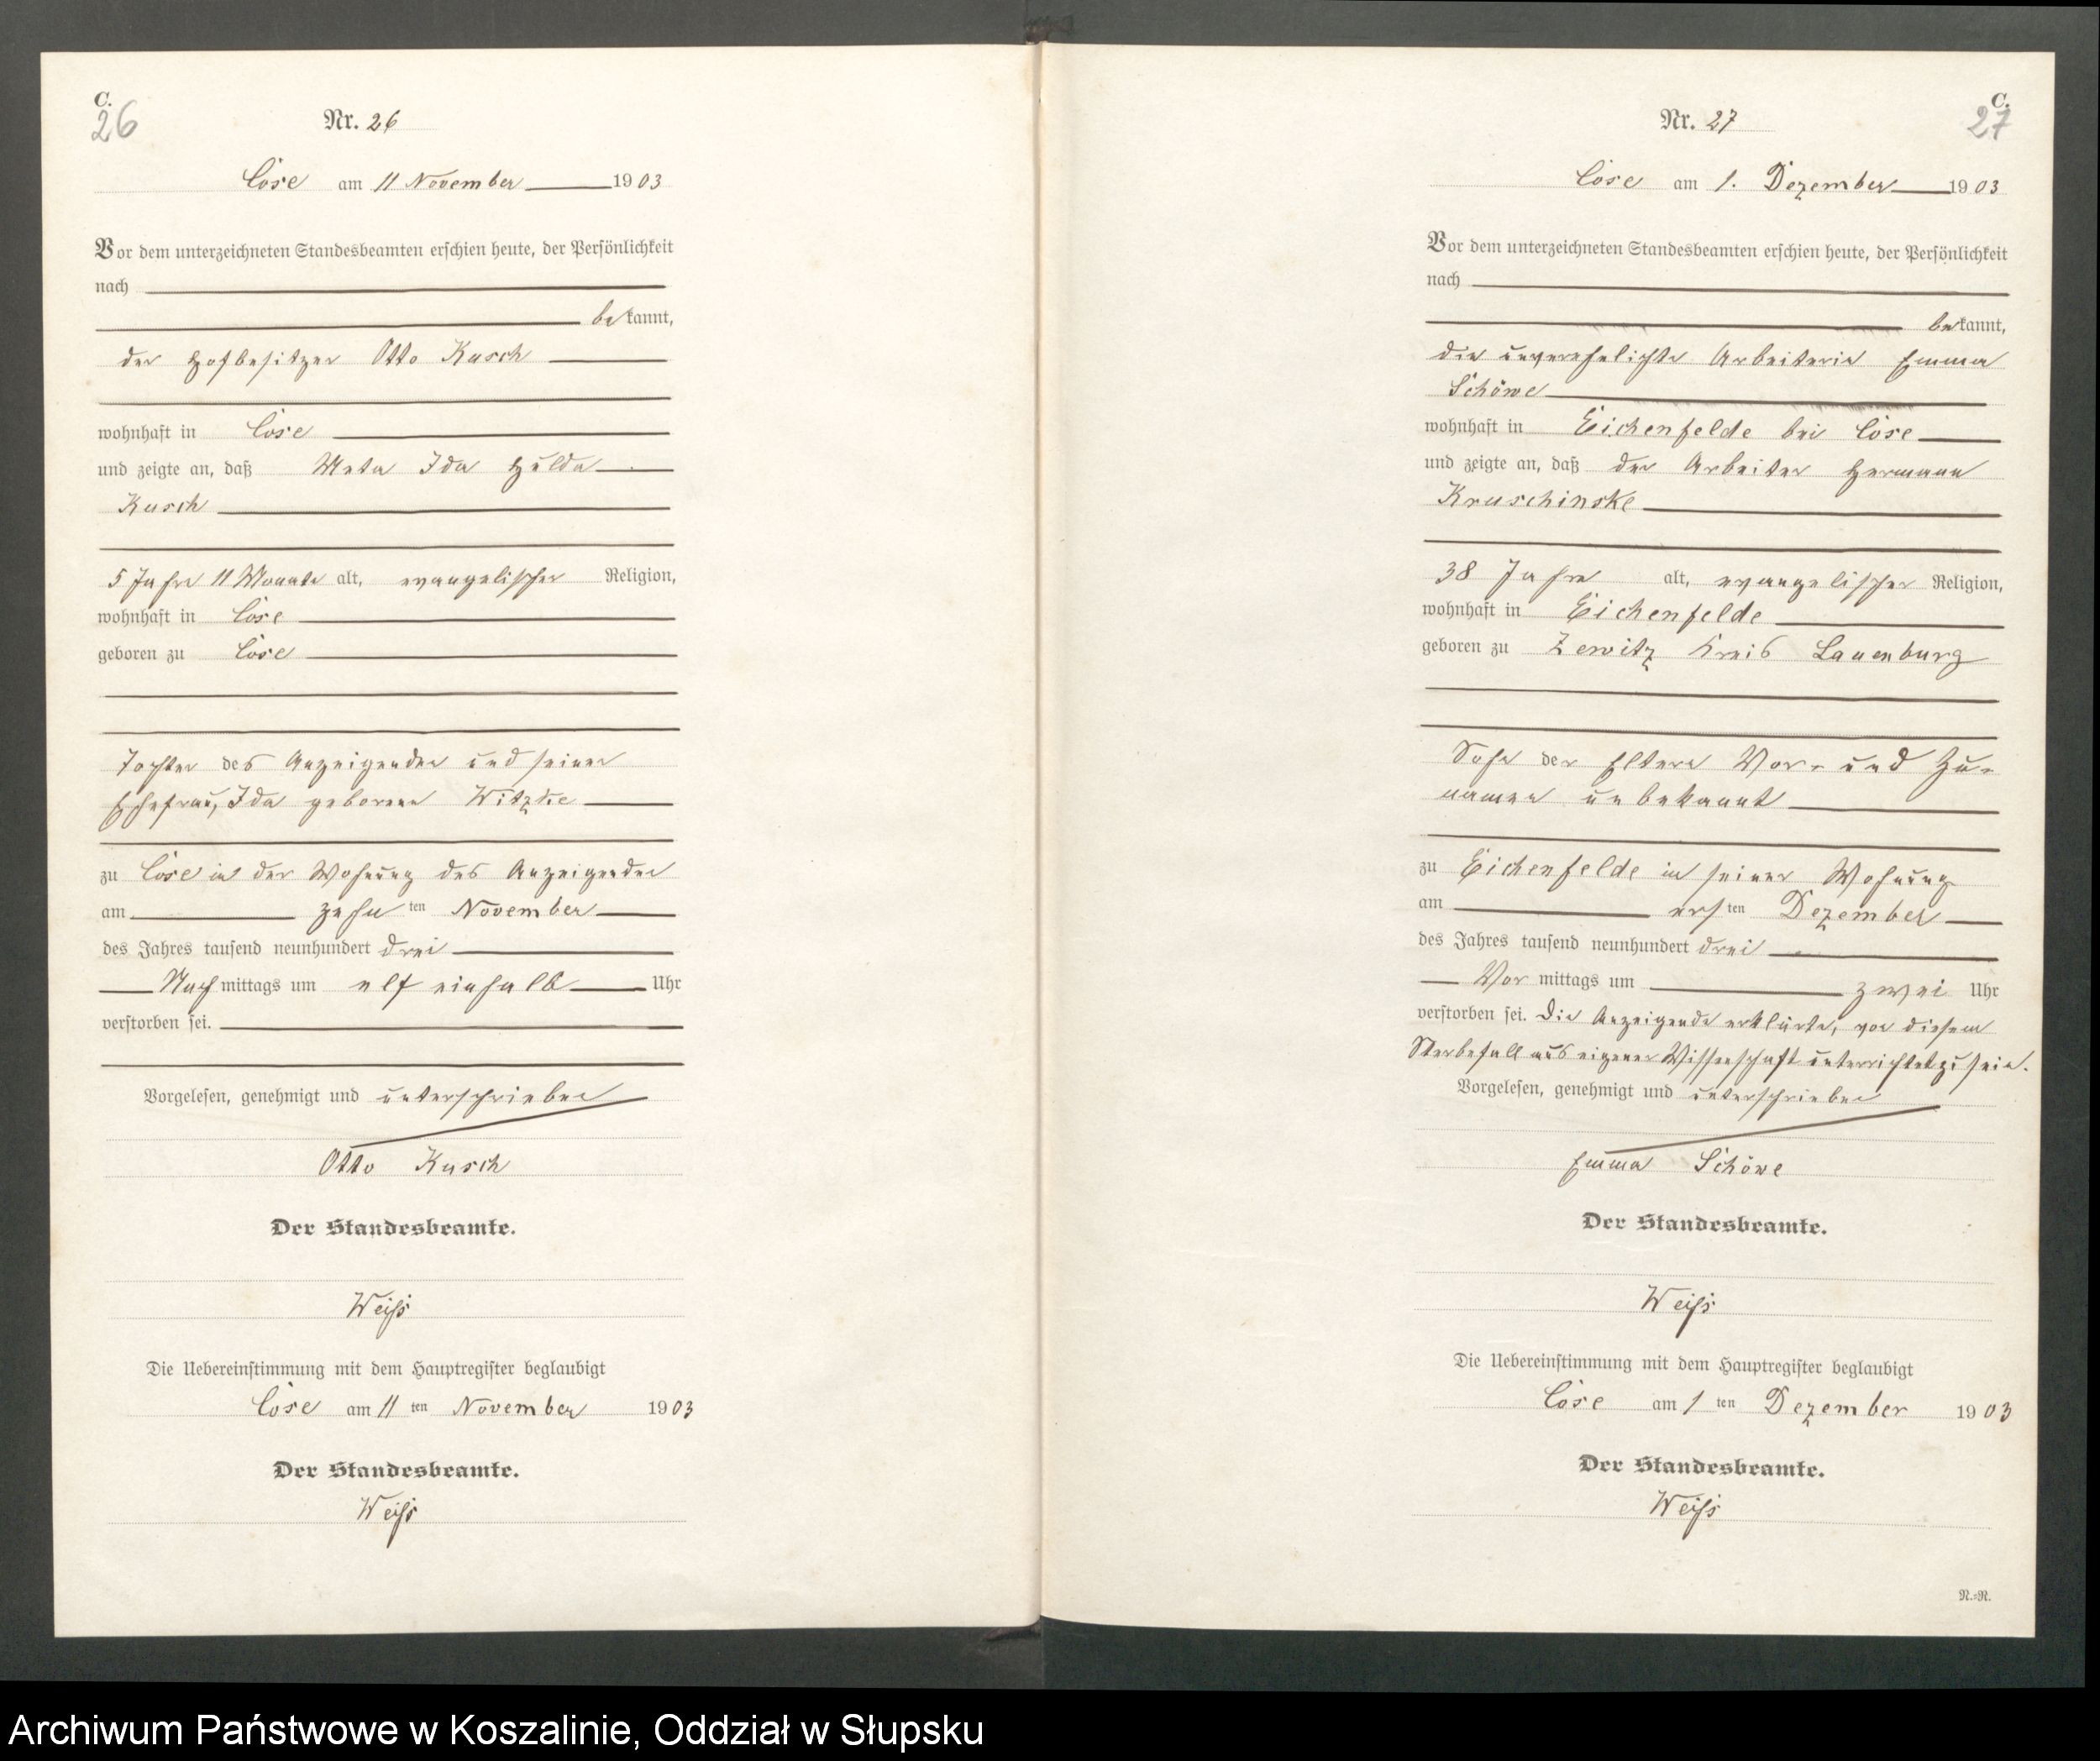 C.
26
Nr. 26
Cöse am 11 November 1903
Vor dem unterzeichneten Standesbeamten erschien heute, der Persönlichkeit
nach
bekannt,
der Hofbesitzer Otto Kusch
wohnhaft in Cöse
und zeigte an, daß Meta Ida Hulda
Kusch
5 Jahre 11 Monate alt, evangelischer Religion,
wohnhaft in Cöse
geboren zu Cöse
Tochter des Anzeigenden und seiner
Ehefrau, Ida geborene Witzke
zu Cöse in der Wohnung des Anzeigenden
am zehn ten November
des Jahres tausend neunhundert drei
Nachmittags um elf einhalb Uhr
verstorben sei.
Vorgelesen, genehmigt und unterschrieben
Otto Kusch
Der Standesbeamte.
Weiß
Die Uebereinstimmung mit dem Hauptregister beglaubigt
Cöse am 11 ten November 1903
Der Standesbeamte.
Weiß
C.
27
Nr. 27
Cöse am 1. Dezember 1903
Vor dem unterzeichneten Standesbeamten erschien heute, der Persönlichkeit
nach
bekannt,
die unverehelichte Arbeiterin Emma
Schöwe
wohnhaft in Eichenfelde bei Cöse
und zeigte an, daß der Arbeiter Hermann
Kruschinske
38 Jahre alt, evangelischer Religion,
wohnhaft in Eichenfelde
geboren zu Zewitz Kreis Lauenburg
Sohn der Eltern Vor- und Zu-
namen unbekannt
zu Eichenfelde in seiner Wohnung
am ersten Dezember
des Jahres tausend neunhundert drei
Vor mittags um zwei Uhr
verstorben sei. Die Anzeigende erklärte, von diesem
Sterbefall aus eigener Wissenschaft unterrichtet zu sein.
Vorgelesen, genehmigt und unterschrieben
Emma Schöwe
Der Standesbeamte.
Weiß
Die Uebereinstimmung mit dem Hauptregister beglaubigt
Cöse am 1 ten Dezember 1903
Der Standesbeamte.
Weiß
N.=N.
Archiwum Państwowe w Koszalinie, Oddział w Słupsku